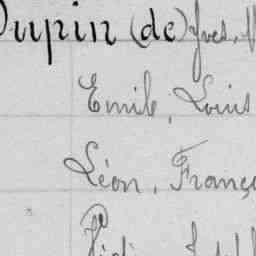 Dupin (de) Yves,
Emile, Louis
Léon, Franço